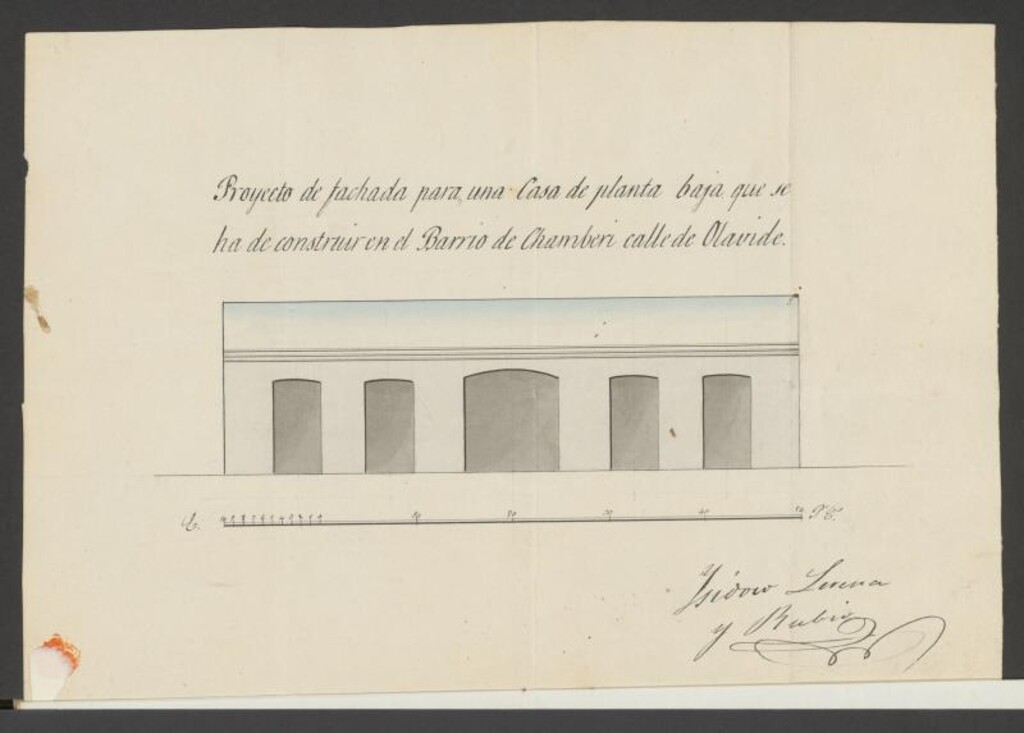 Proyecto de fachada para una Casa de planta baja que se
ha de construir en el Barrio de Chamberi calle de Olavide.
10 20 30 40 50
Ysidoro Lerena
y Rubio